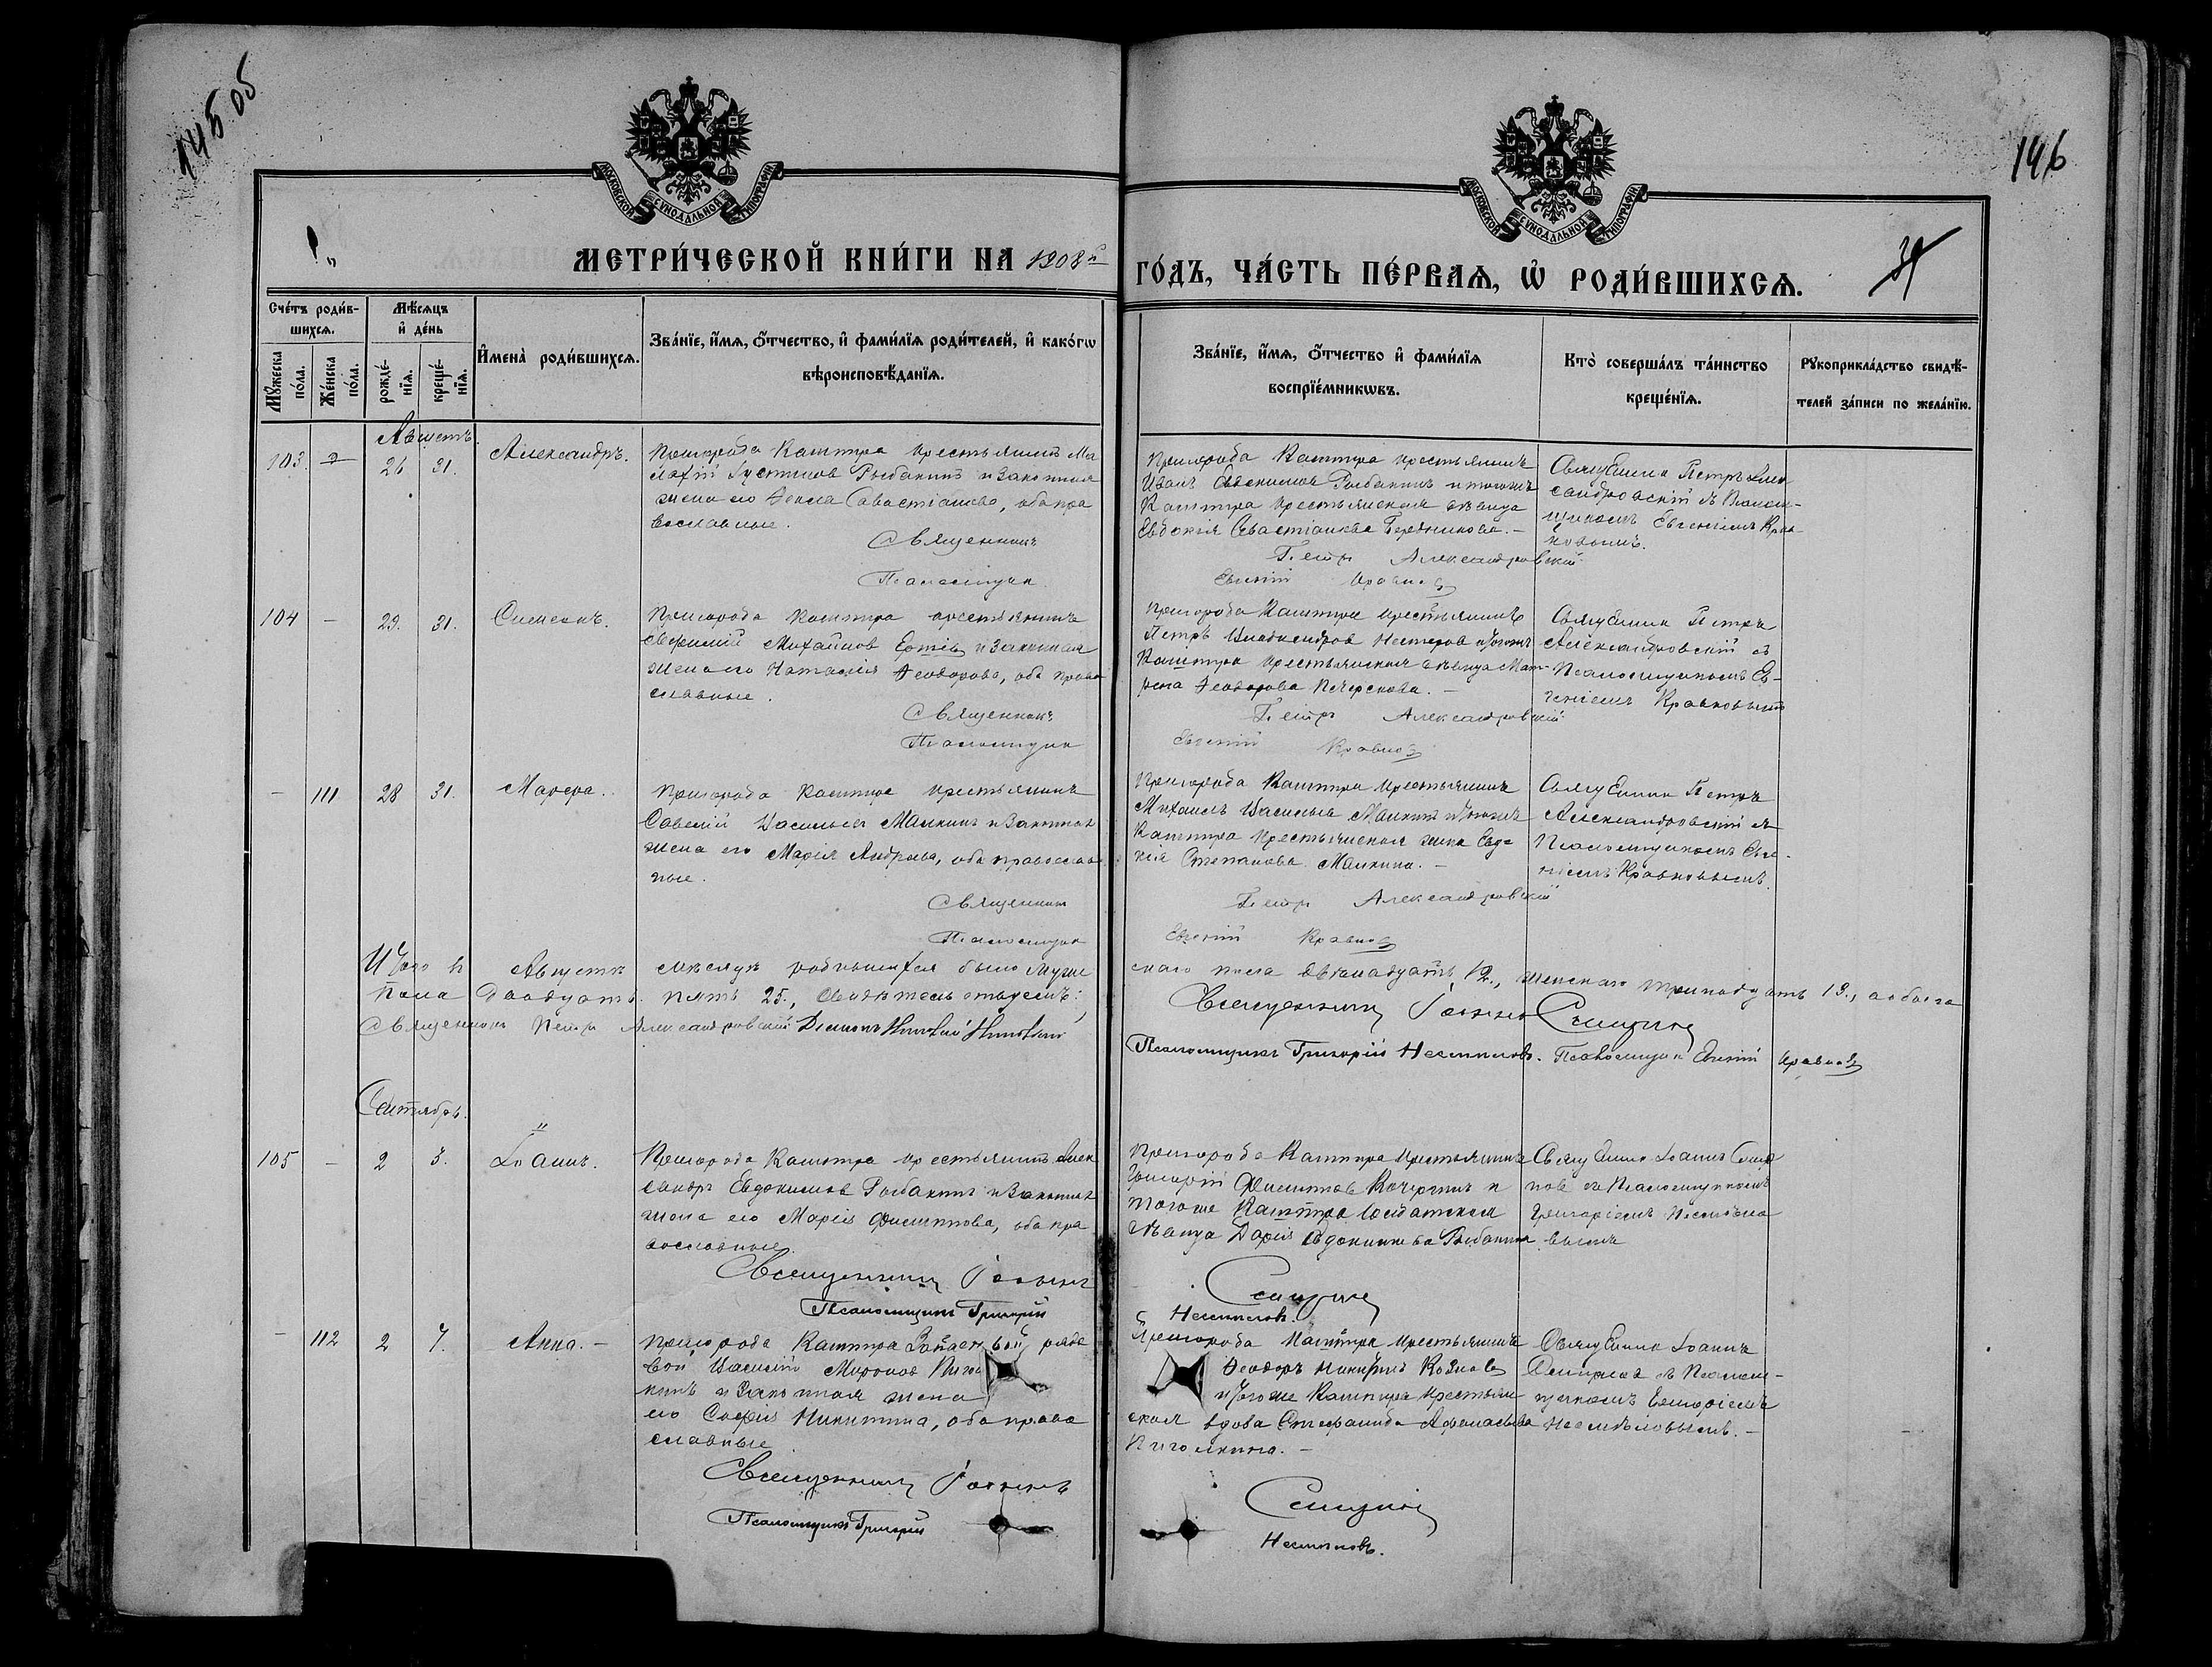 145 об
146
МОСКОВСКОЙ СѴНОДАЛЬНОЙ ТИПОГРАФІИ
МОСКОВСКОЙ СѴНОДАЛЬНОЙ ТИПОГРАФІИ
МЕТРИ́ЧЕСКОЙ КНИ́ГИ НА 1908й
ГО́ДЪ, ЧА́СТЬ ПЕ́РВАѦ, Ѡ҆ РОДИ́ВШИХСѦ.
39
Сче́тъ роди́в-
шихсѧ.
Мꙋ́жеска по́ла.
Же́нска по́ла.
Мѣ́сѧцъ
и҆ де́нь
рожде́-нїѧ.
креще́-нїѧ.
И҆мена̀ роди́вшихсѧ.
Зва́нїе, и҆́мѧ, ѻ҆́тчество, и҆ фами́лїѧ роди́телей, и҆ како́гѡ
вѣроисповѣ́данїѧ.
Зва́нїе, и҆́мѧ, ѻ҆́тчество и҆ фами́лїѧ
воспрїе́мникѡвъ.
Кто̀ соверша́лъ та́инство
креще́нїѧ.
Рꙋкоприкла́дство свидѣ́-
телей за́писи по жела́нїю.
Августъ.
103. 26 31. Александръ.
Пригорода Кашпира крестьянинъ Ма
лафій Іустиновъ Рыбакинъ и законная
жена его Ѳекла Савастіанова, оба пра
вославные.
Священникъ
Псаломщикъ
Пригорода Кашпира крестьянинъ
Иванъ Евдокимовъ Рыбакинъ и тогоже
Кашпира крестьянская дѣвица
Евдокія Севастіанова
Петръ Александровскій
Евгеній Кравковъ
Священникъ Петръ Алек
сандровскій съ Псалом-
щикомъ Евгеніемъ Крав
ковымъ.
104 – 29. 31. Симеонъ.
Пригорода Кашпира крестьянинъ
Евфимій Михайловъ и законная
жена его Наталія Ѳеодорова, оба право
славные.
Священникъ
Псаломщикъ
Пригорода Кашпира крестьянинъ
Петръ Нестеровъ и тогоже
Кашпира крестьянская дѣвица Мат-
рона Ѳеодорова Печерскова. –
Петръ Александровскій
Евгеній Кравковъ
Священникъ Петръ
Александровскій съ
Псаломщикомъ Ев-
геніемъ Кравковымъ
– 111 28 31. Марѳа.
Пригорода Кашпира крестьянинъ
Савелій Васильевъ Малкинъ и законная
жена его Марія Андреева, оба православ
ные.
Священникъ
Псаломщикъ
Пригорода Кашпира крестьянинъ
Михаилъ Васильевъ Малкинъ и тогоже
Кашпира крестьянская жена Евдо
кія Степанова Малкина. –
Петръ Александровскій
Евгеній Кравковъ
Священникъ Петръ
Александровскій съ
Псаломщикомъ Евге-
ніемъ Кравковымъ.
Итого въ Августѣ мѣсяцѣ родившихся было муже
скаго пола двѣнадцать 12., женскаго тринадцать 13., а обоего
пола Двадцать пять 25.,
Священникъ Іоаннъ Смирновъ
Священникъ Петръ Александровскій Діаконъ
Псаломщикъ Григорій Несмѣловъ. Псаломщикъ Евгеній Кравковъ
Сентябрь.
105 – 2 3. Іоаннъ.
Пригорода Кашпира крестьянинъ Алек
сандръ Евдокимовъ Рыбакинъ и законная
жена его Марія Филиппова, оба пра
вославные.
Священникъ Іоаннъ
Псаломщикъ Григорій
Пригорода Кашпира крестьянинъ
Григорій Филипповъ Кочергинъ и
тогоже Кашпира солдатская
дѣвица Дарія Евдокимова Рыбакина
Смирновъ
Несмѣловъ.
Священникъ Іоаннъ Смир
новъ съ Псаломщикомъ
Григоріемъ Несмѣло
вымъ
– 112 2 7. Анна. –
Пригорода Кашпира Запасный рядо
вой Василій Мироновъ
и законная жена
его Софія Никитина, оба право
славные
Священникъ Іоаннъ
Псаломщикъ Григорій
Пригорода Кашпира крестьянинъ
Ѳеодоръ Козловъ
и тогоже Кашпира крестьян
ская вдова Стефанида Афанасьева
Пиголкина. –
Смирновъ
Несмѣловъ.
Священникъ Іоаннъ
Смирновъ съ Псалом-
щикомъ Григоріемъ
Несмѣловымъ. –